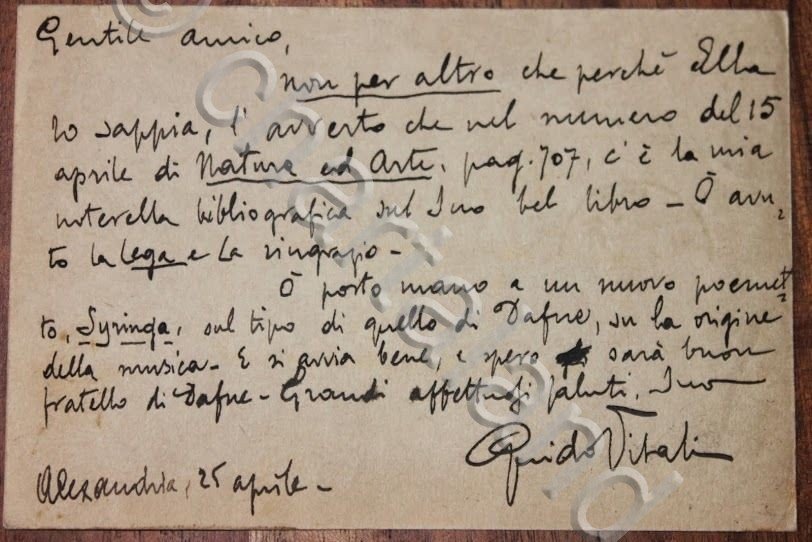 Gentile amico,
non per altro che perchè Ella
lo sappia, l'avverto che nel numero del 15
aprile di Natura ed Arte, pag. 707, c'è la mia
noterella bibliografica sul Suo bel libro - Ò avu=
to la lega e La ringrazio -
Ò posto mano a un nuovo poemet=
to, Syringa, sul tipo di quello di Dafne, su la origine
della musica - E si avvia bene, e spero sarà buon
fratello di Dafne - Grandi affettuosi saluti. Suo
Guido Vitali
Alexandria, 25 aprile -
© chartaland